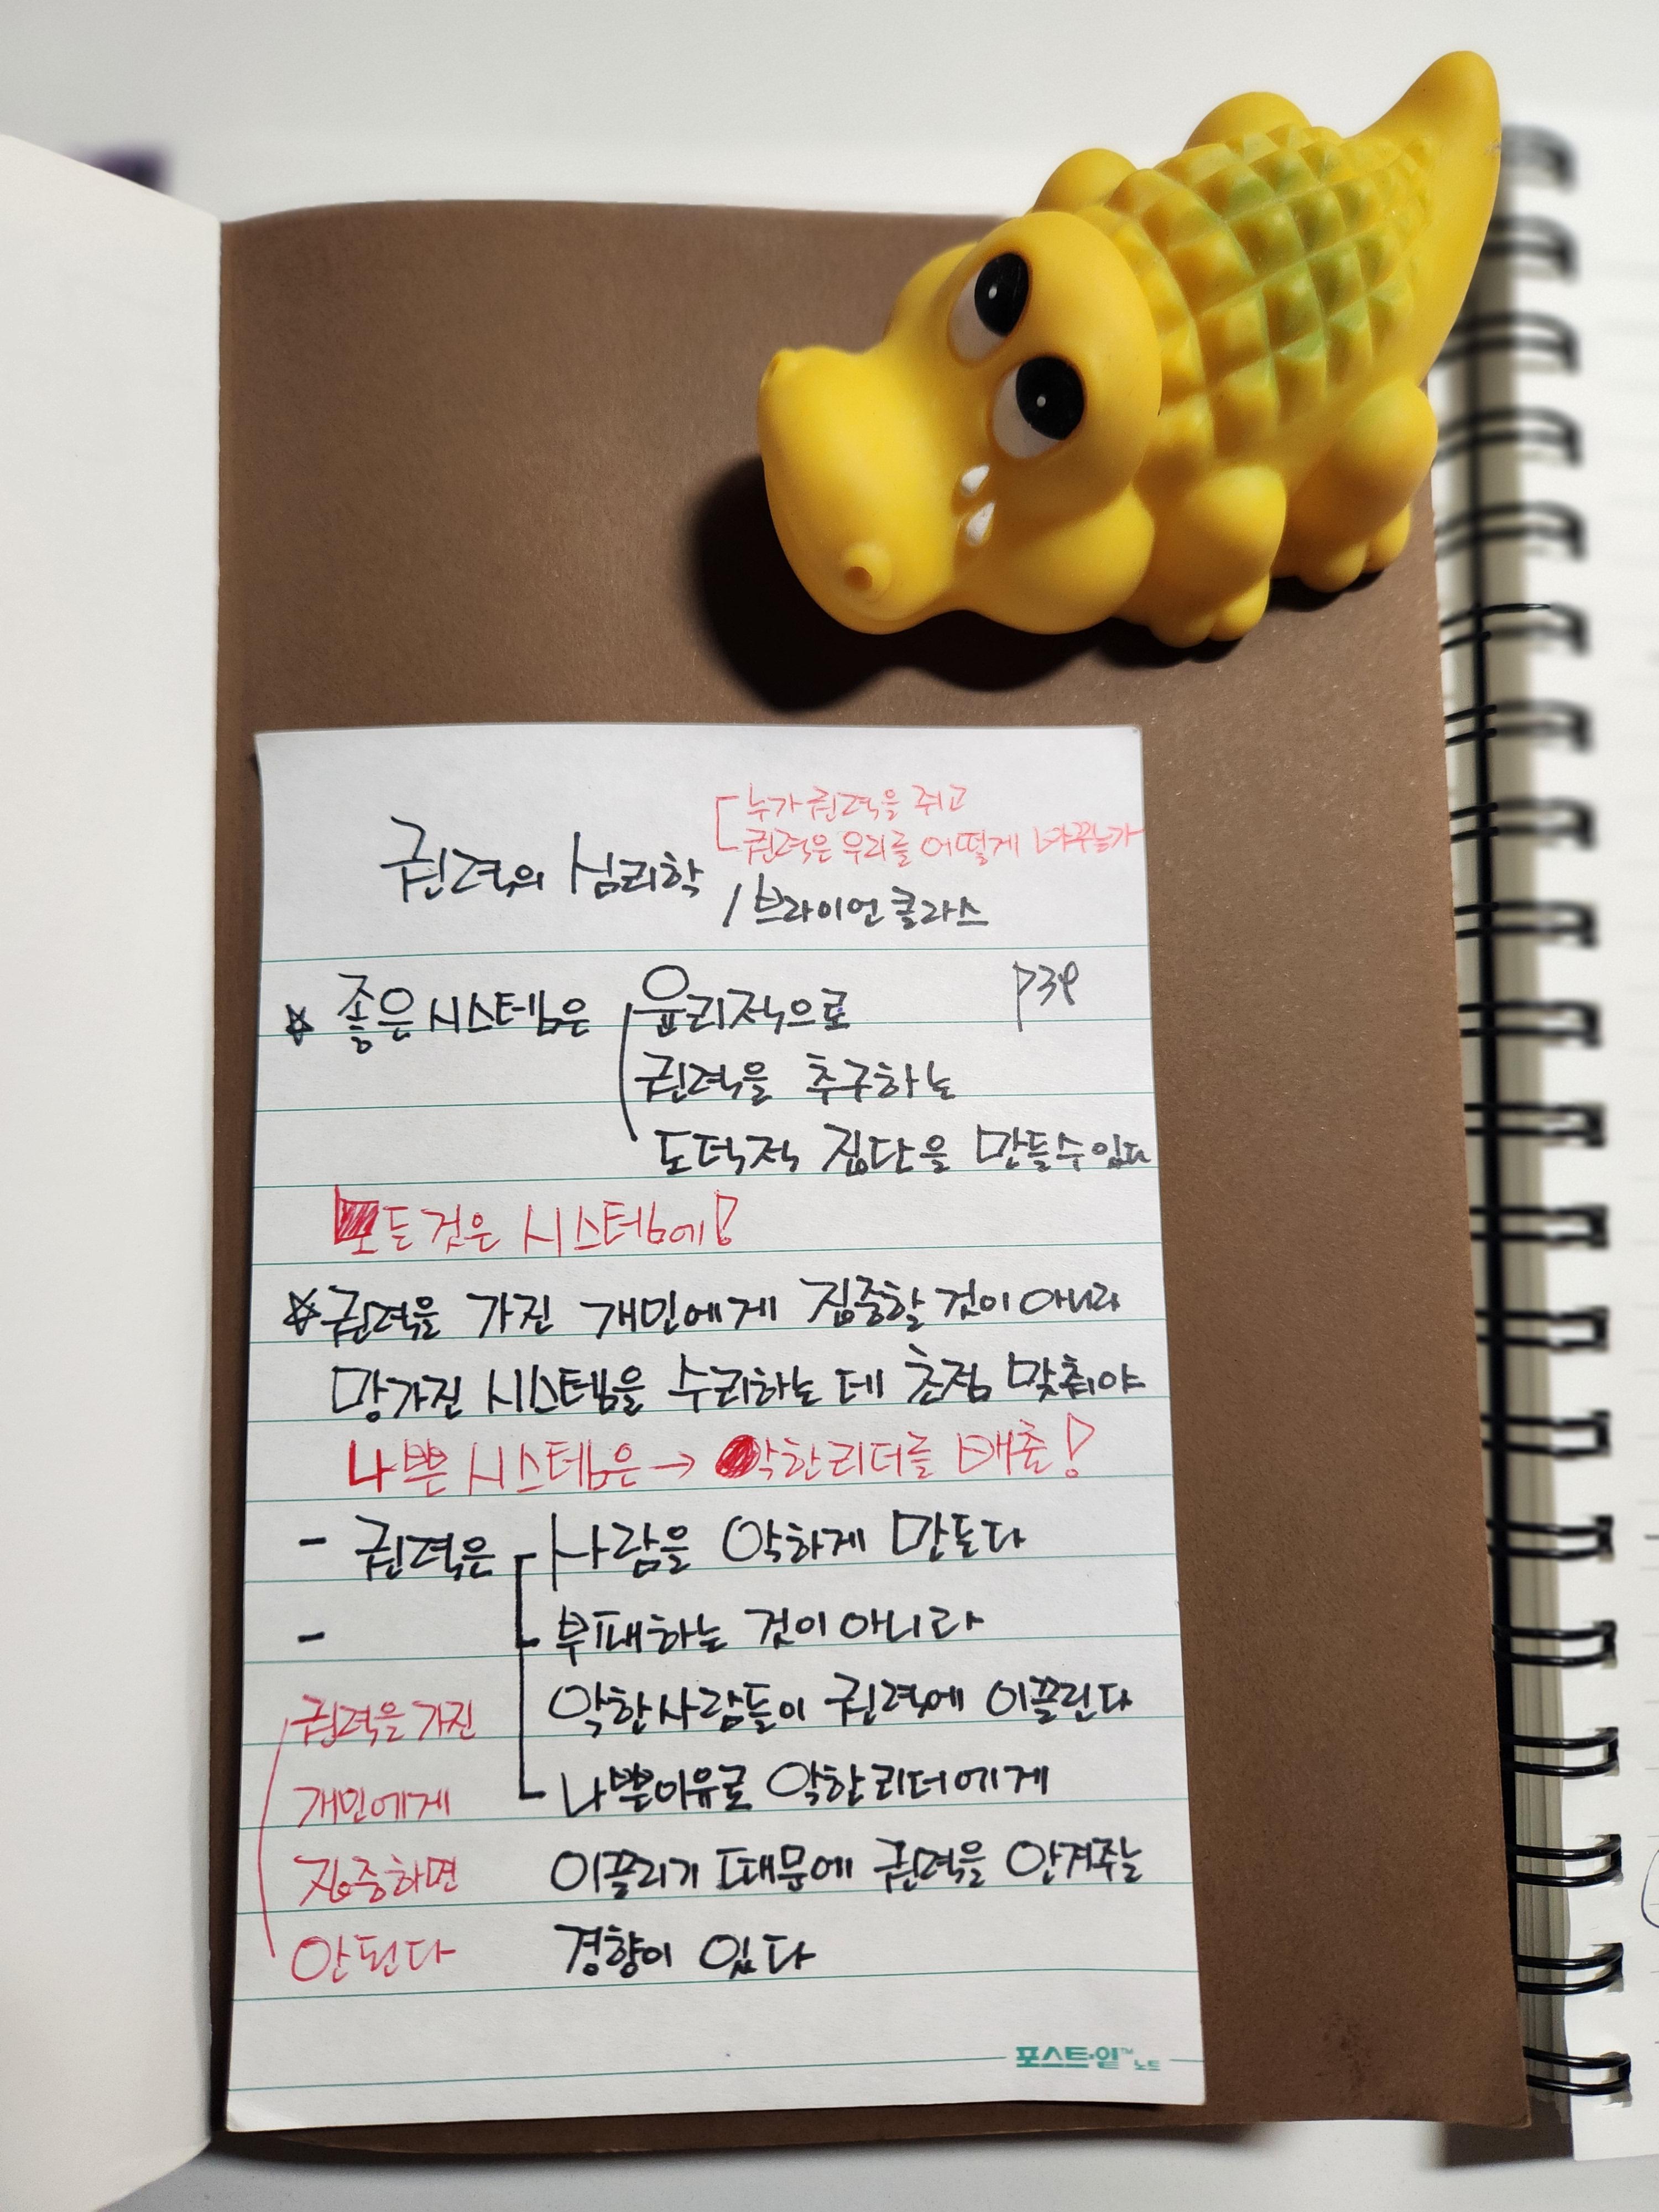 누가 권력을 쥐고
권력은 우리를 어떻게 바꾸는가
권력의 심리학
/브라이언 클라스
☆ 좋은 시스템은 윤리적으로 P39
권력을 추구하는
도덕적 집단을 만들수있다
모든것은 시스템에!
☆ 권력을 가진 개인에게 집중할 것이 아니라
망가진 시스템을 수리하는 데 초점 맞춰야
나쁜 시스템은 → 악한리더를 배출!
- 권력은 사람을 악하게 만든다
- 부패하는 것이 아니라
악한사람들이 권력에 이끌린다
나쁜이유로 악한리더에게
이끌리기 때문에 권력을 안겨주는
경향이 있다
권력을 가진
개인에게
집중하면
안된다
포스트-잇™ 노트